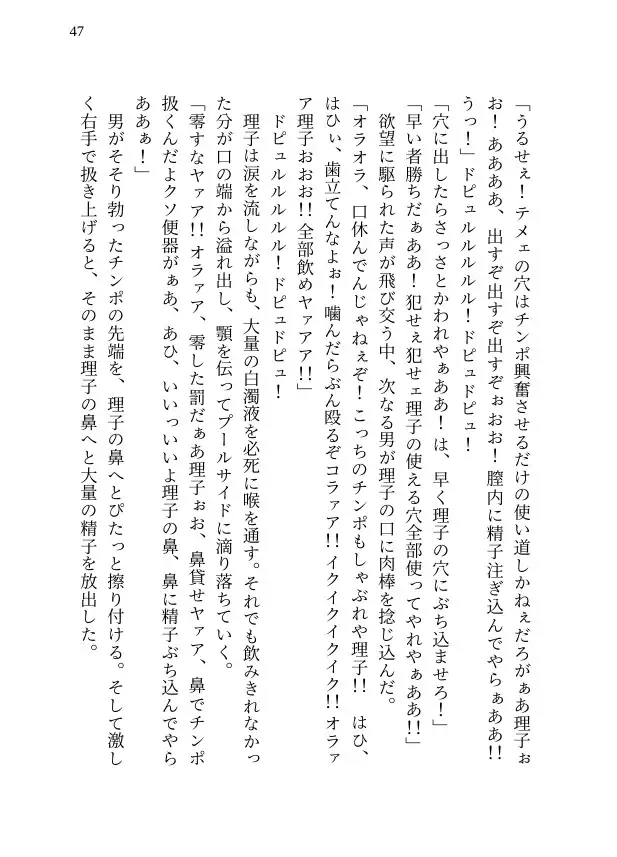 47
「うるせぇ！テメェの穴はチンポ興奮させるだけの使い道しかねぇだろがぁあ理子ぉ
お！ああああ、出すぞ出すぞ出すぞぉおお！膣内に精子注ぎ込んでやらぁああ!!
うっ！」ドピュルルルルル！ドピュドピュ！
「穴に出したらさっさとかわれやぁああ！は、早く理子の穴にぶち込ませろ！」
「早い者勝ちだぁああ！犯せぇ犯せェ理子の使える穴全部使ってやれやぁああ!!」
欲望に駆られた声が飛び交う中、次なる男が理子の口に肉棒を捻じ込んだ。
「オラオラ、口休んでんじゃねぇぞ！こっちのチンポもしゃぶれや理子!!　はひ、
はひぃ、歯立てんなよぉ！噛んだらぶん殴るぞコラァア!!イクイクイクイク!!オラァ
ア理子おおお!!全部飲めヤァアア!!」
ドピュルルルルルル！ドピュドピュ！
理子は涙を流しながらも、大量の白濁液を必死に喉を通す。それでも飲みきれなかっ
た分が口の端から溢れ出し、顎を伝ってプールサイドに滴り落ちていく。
「零すなヤァア!!オラァア、零した罰だぁあ理子ぉお、鼻貸せヤァア、鼻でチンポ
扱くんだよクソ便器がぁあ、あひ、いいっいいよ理子の鼻、鼻に精子ぶち込んでやら
ああぁ！」
男がそそり勃ったチンポの先端を、理子の鼻へとぴたっと擦り付ける。そして激し
く右手で扱き上げると、そのまま理子の鼻へと大量の精子を放出した。